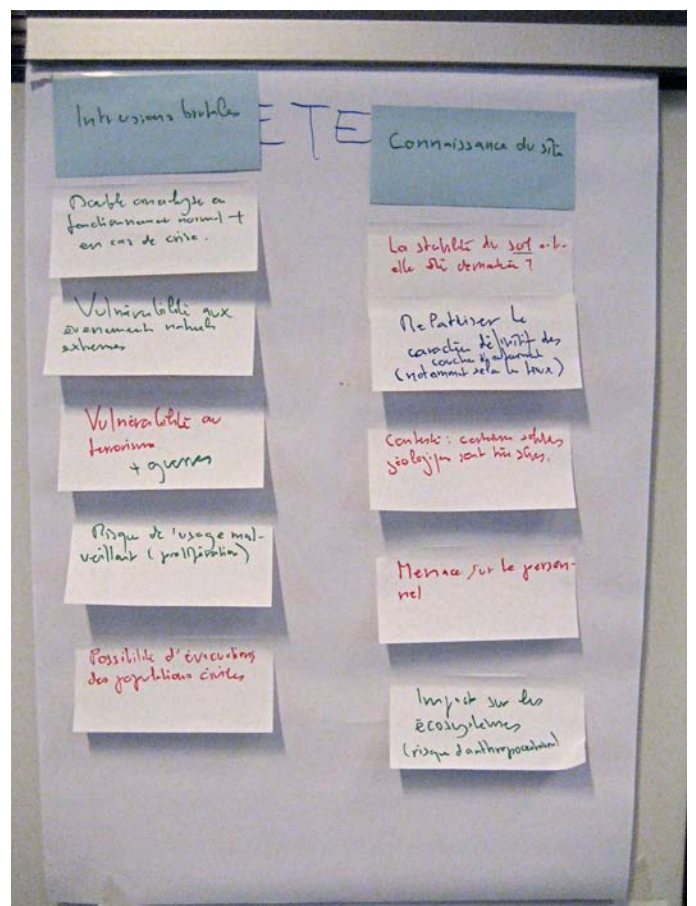 ETE
Intrusions brutales
Double analyse en
fonctionnement normal +
en cas de crise.
Vulnérabilité aux
évènements naturels
extrêmes
Vulnérabilité au
terrorisme
+ guerres
Risque de l'usage mal-
veillant (prolifération)
Possibilité d'évacuations
des populations civiles
Connaissance du site
La stabilité du sol a-t-
elle été démontrée ?
Relativiser le
caractère définitif des
couches
(notamment selon
Contesté : certaines
géologiques sont très sûres.
Menace sur le person-
nel
Impact sur les
écosystèmes
(risque d'anthropocentrisme)